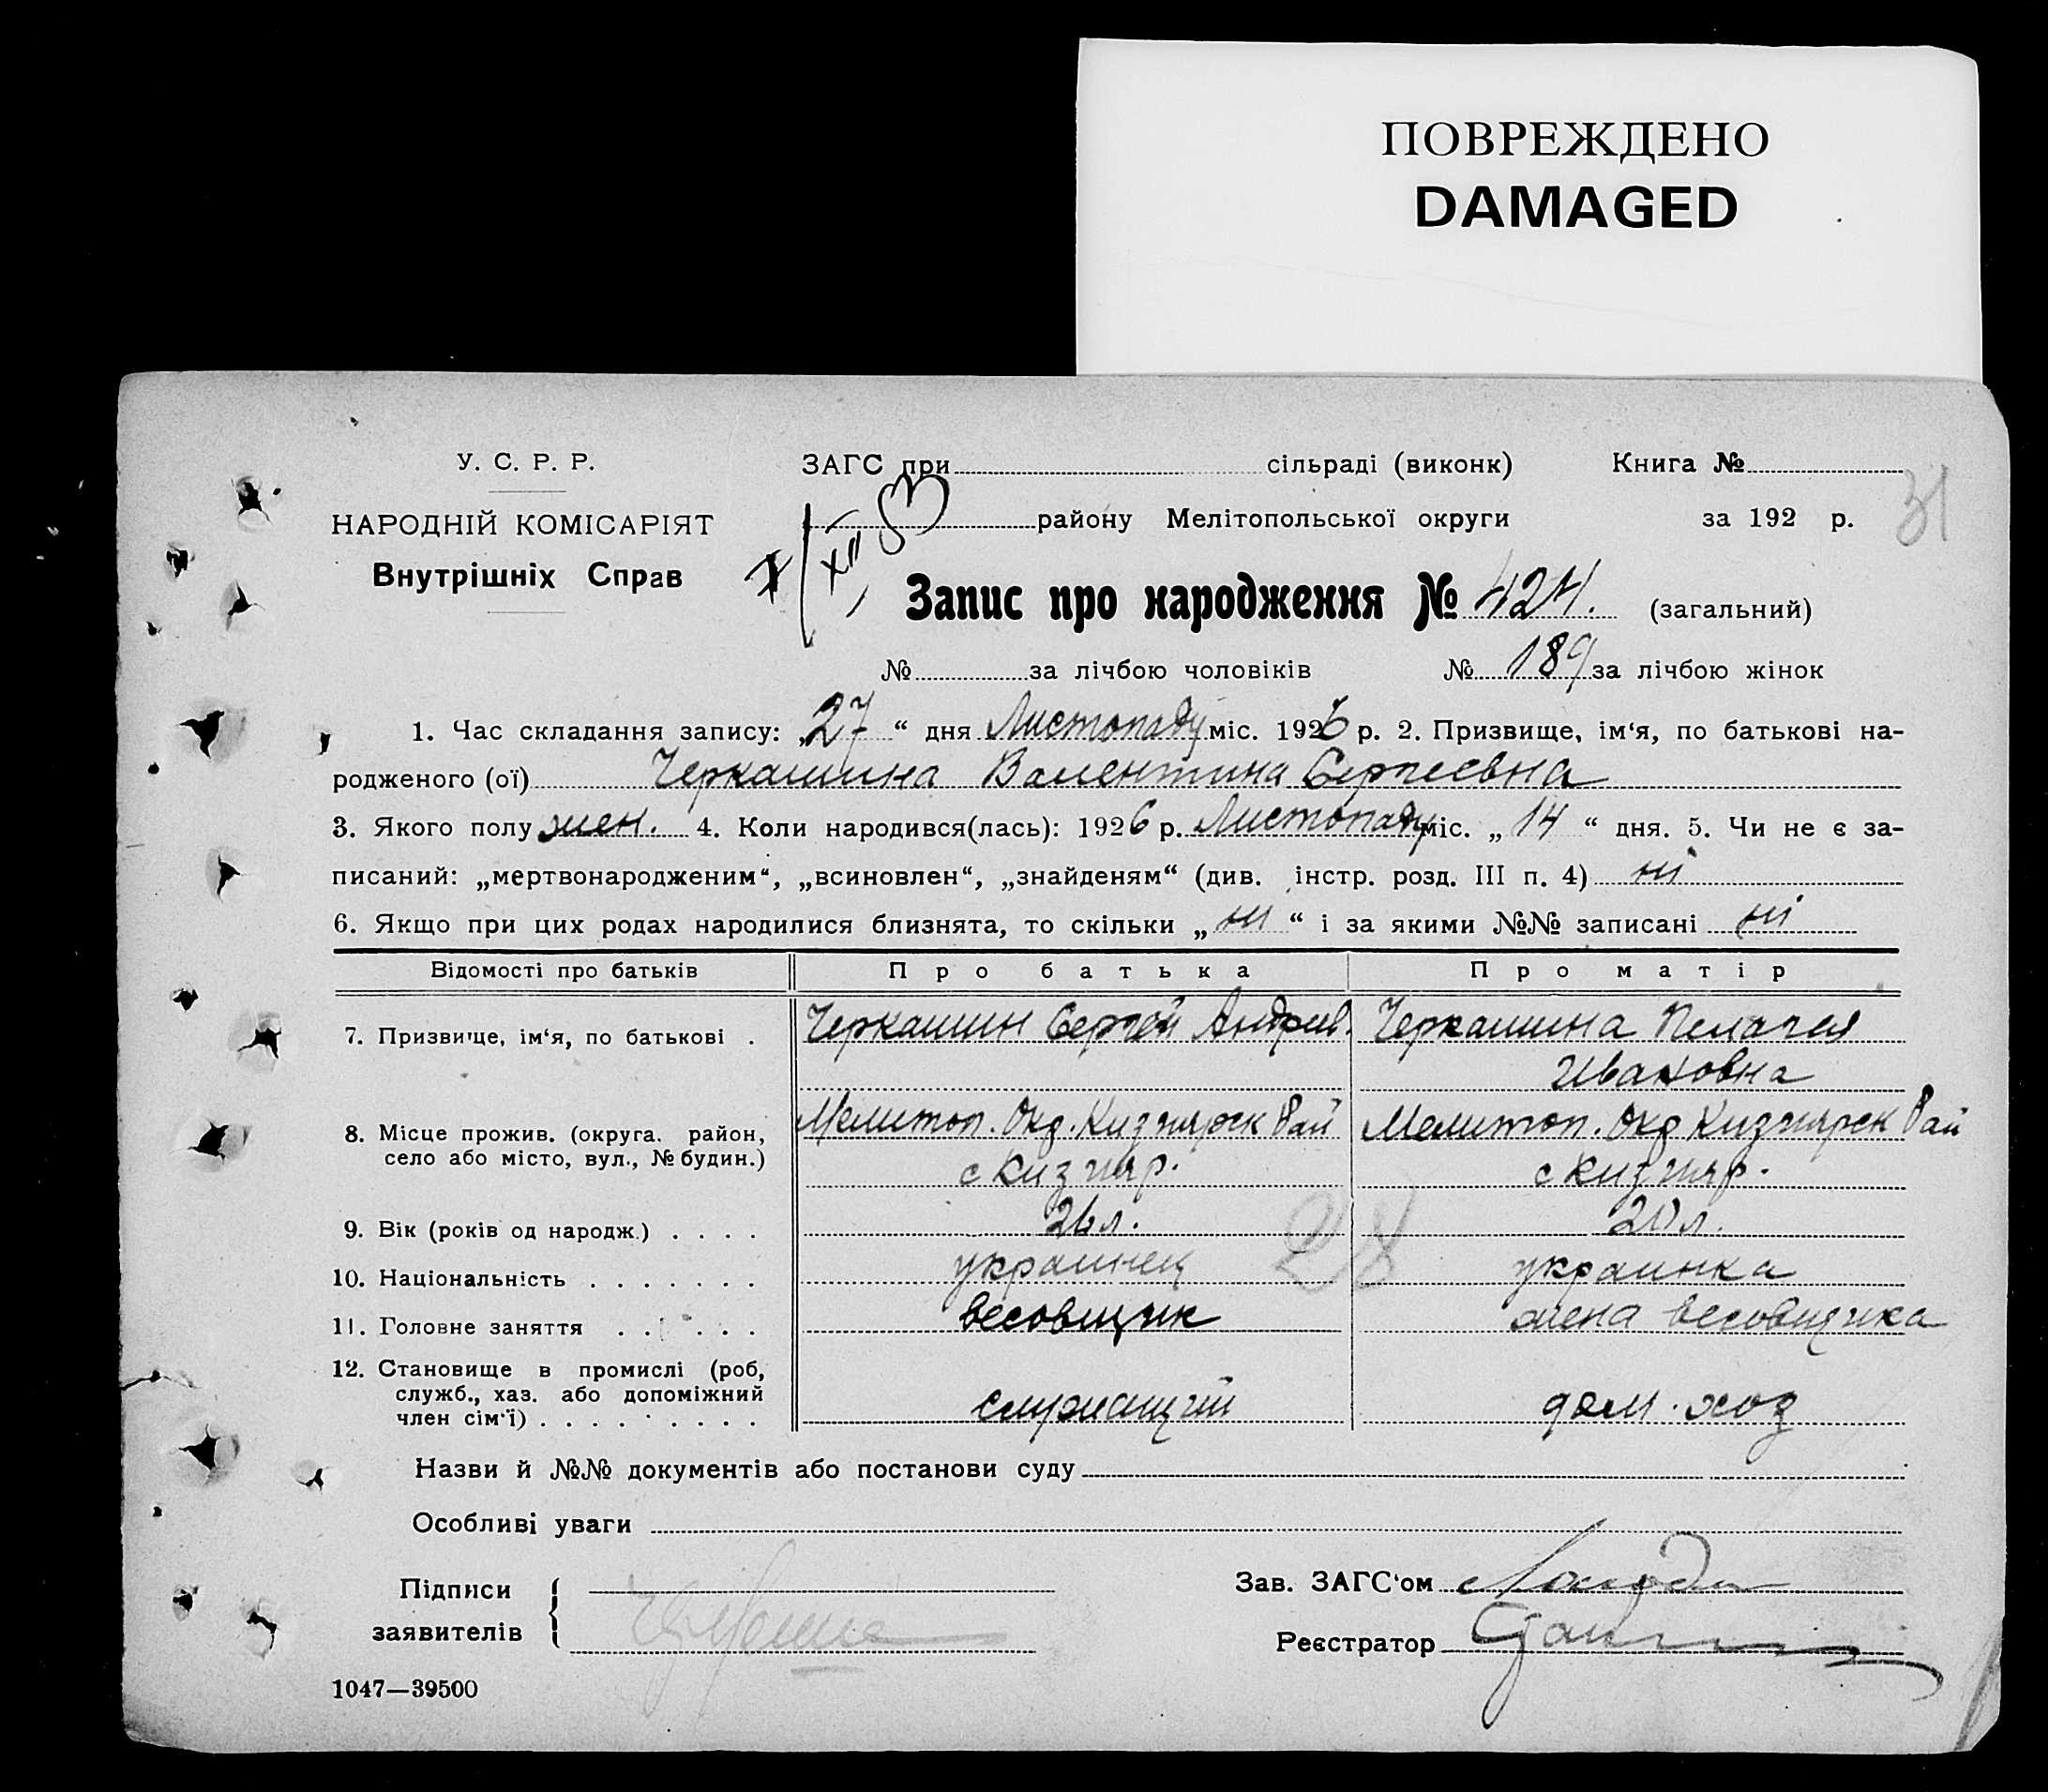 ПОВРЕЖДЕНО
DAMAGED
У. С. Р. Р.
НАРОДНІЙ КОМІСАРІЯТ
Внутрішніх Справ
ЗАГС при сільраді (виконк) Книга №
району Мелітопольської округи за 192 р.
31
XII
Запис про народження № 424. (загальний)
№ за лічбою чоловіків № 189 за лічбою жінок
1. Час складання запису: „27“ дня Листопаду міс. 1926 р. 2. Призвище, ім‘я, по батькові на-
родженого (ої) Черкашина Валентина Сергеевна
3. Якого полу жен. 4. Коли народився(лась): 1926 р. Листопаду міс. „14“ дня. 5. Чи не є за-
писаний: „мертвонародженим“, „всиновлен“, „знайденям“ (див. інстр. розд. III п. 4) ні
6. Якщо при цих родах народилися близнята, то скільки „ні“ і за якими №№ записані ні
Відомості про батьків Про батька Про матір
7. Призвище, ім‘я, по батькові . Черкашин Сергей Андреев. Черкашина Пелагея
Ивановна
8. Місце прожив. (округа. район, Мелитоп. Окр. Кизиярск Рай Мелитоп. Окр Кизиярск Рай
село або місто, вул., № будин.) с Кизияр. с Кизияр.
9. Вік (років од народж.) . . . . 26 л. 20 л.
28
10. Національність . . . . . . . украинец украинка
11. Головне заняття . . . . . . весовщик жена весовщика
12. Становище в промислі (роб,
служб., хаз. або допоміжний служащий дом. хоз
член сім‘ї) . . . . . . . . .
Назви й №№ документів або постанови суду
Особливі уваги
Підписи
заявителів
Зав. ЗАГС‘ом
Реєстратор
1047—39500